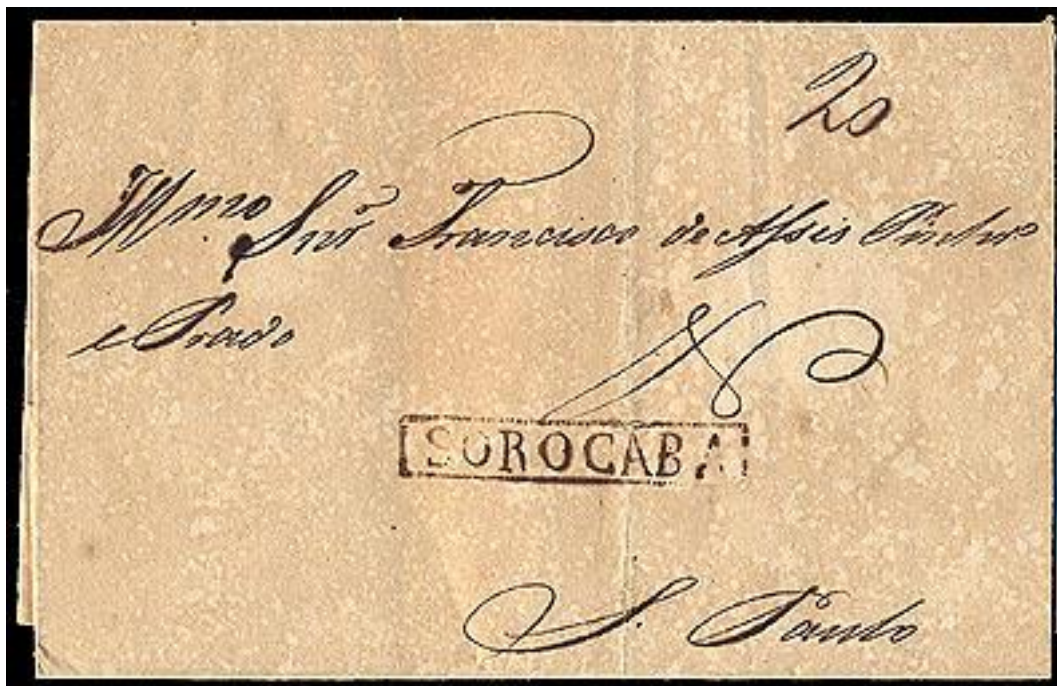 20
Illmo Snr Francisco de Assis Pinheiro
e Prado
SOROCABA
S. Paulo